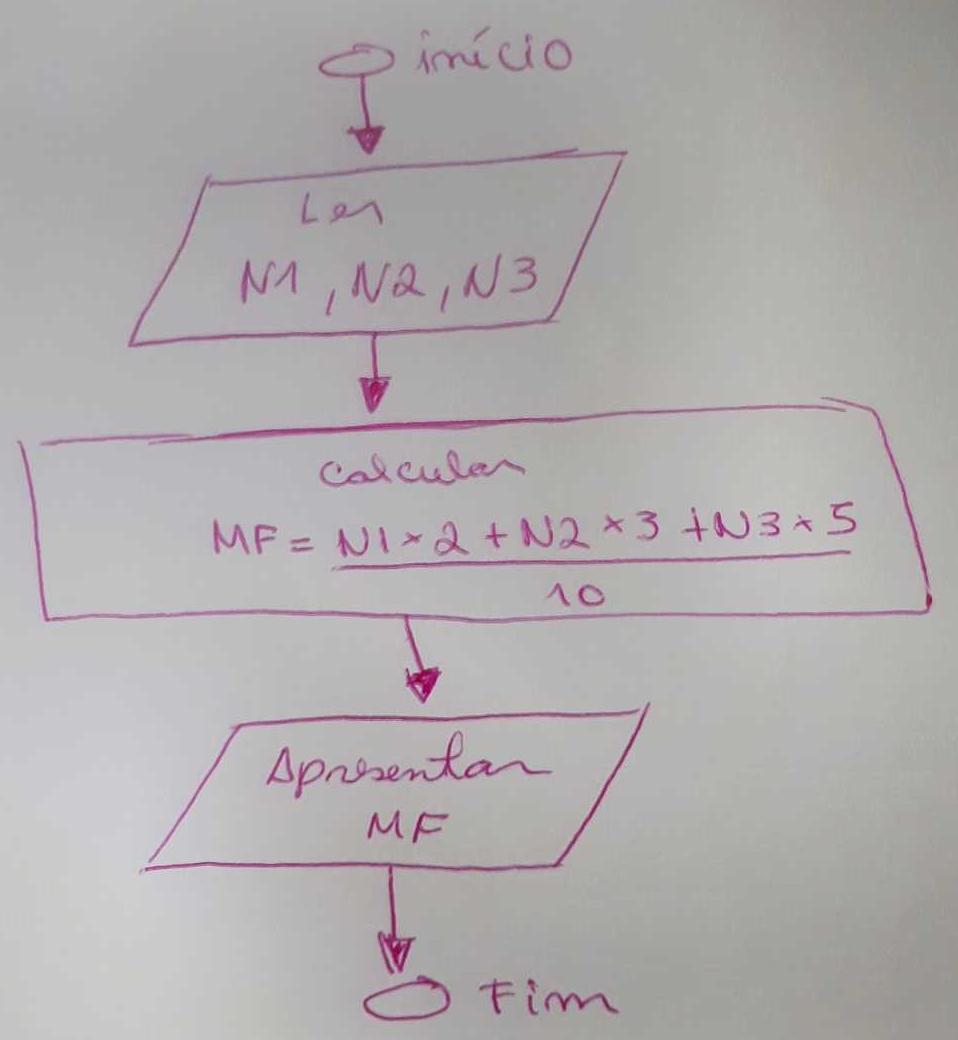 início
Ler
N1, N2, N3
Calcular
MF = N1 × 2 + N2 × 3 + N3 × 5
10
Apresentar
MF
Fim